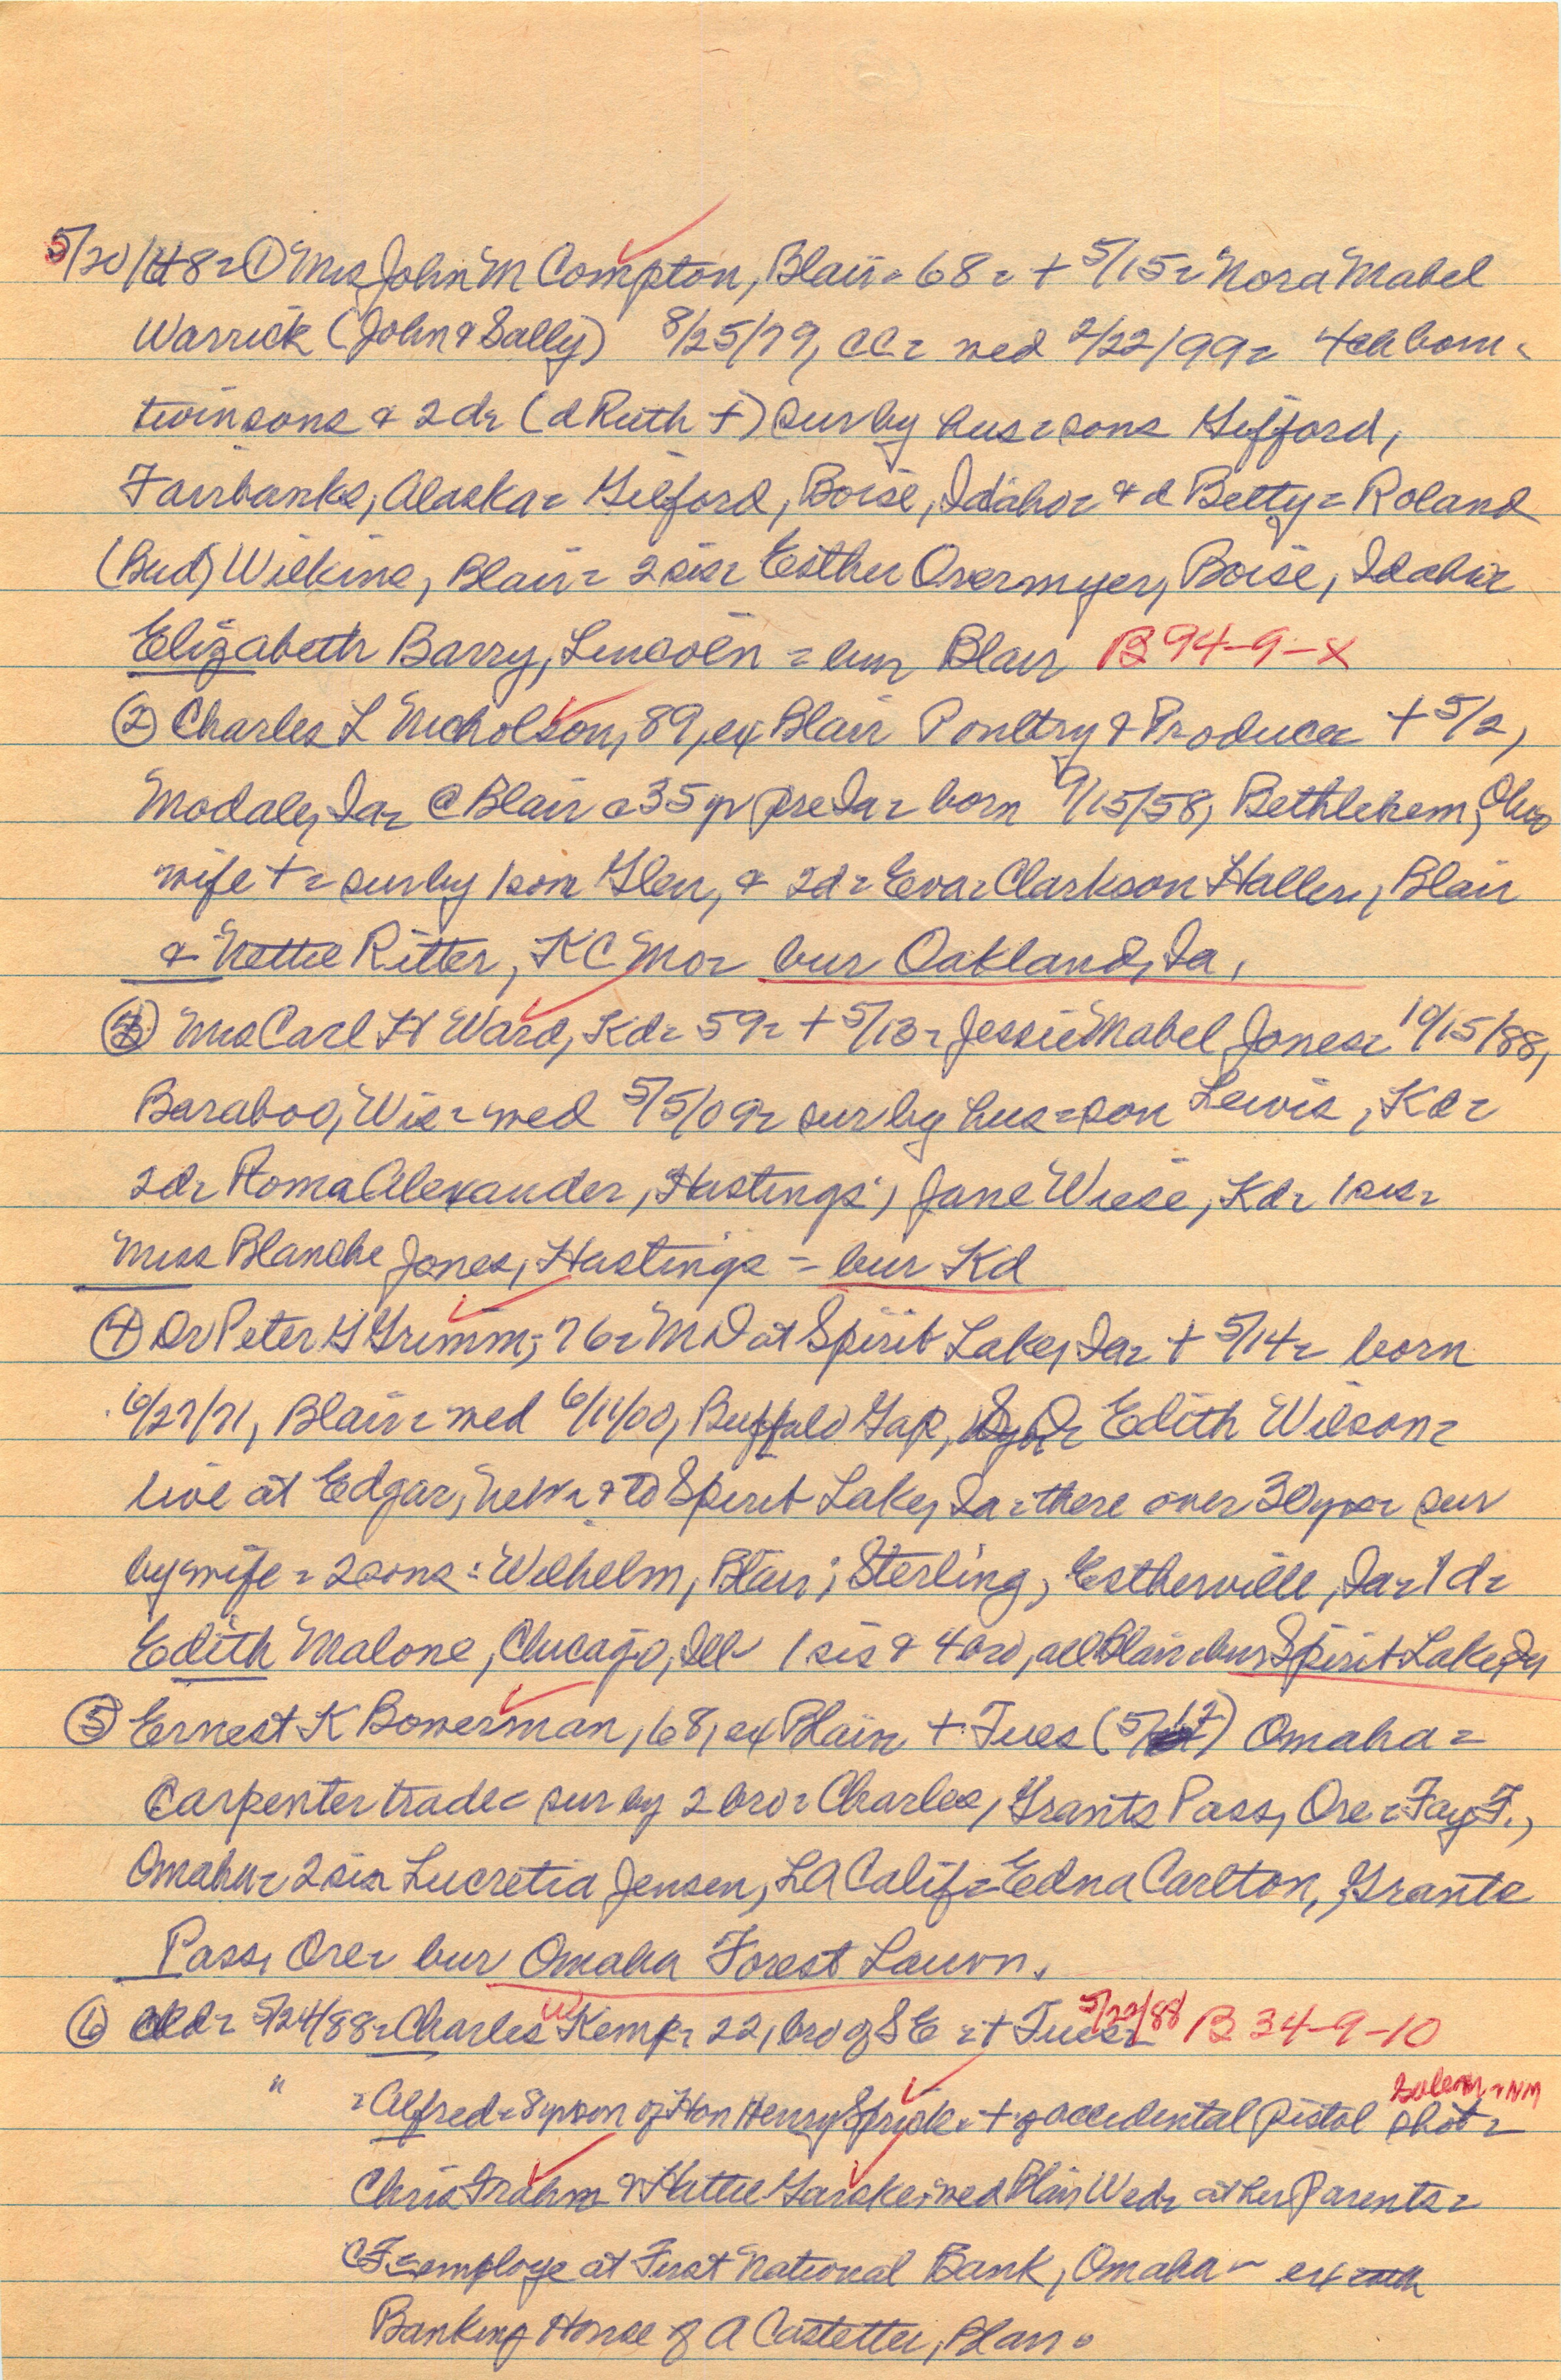 5/20/48 = ① Mrs John M Compton, Blair = 68 = + 5/15 = Nora Mabel
Warrick (John & Sally) 8/25/79, CC = wed 2/22/99 = 4 ch born =
twin sons & 2 d = (d Ruth +) sur by hus = sons Gifford,
Fairbanks, Alaska = Gilford, Boise, Idaho = & d Betty = Roland
(Bud) Wilkins, Blair = 2 sis = Esther Overmyer, Boise, Idaho =
Elizabeth Barry, Lincoln = bur Blair B 94-9-x
② Charles L Nicholson, 89, ex Blair Poultry & Produce = + 5/2,
Modale, Ia = @ Blair a 35 yr pre Ia = born 9/15/58, Bethlehem, Ohio
wife + = sur by 1 son Glen, & 2d = Eva = Clarkson Haller, Blair
& Nettie Ritter, KC Mo = bur Oakland, Ia.
③ Mrs Carl H Ward, Kd = 59 = + 5/13 = Jessie Mabel Jones = 10/15/88,
Baraboo, Wis = wed 5/5/09 = sur by hus = son Lewis, Kd =
2d = Roma Alexander, Hastings, Jane Wiese, Kd = 1 sis =
Miss Blanche Jones, Hastings = bur Kd
④ Dr Peter G Grimm, 76 = MD at Spirit Lake, Ia = + 5/14 = born
6/27/71, Blair = wed 6/11/00, Buffalo Gap, = Edith Wilson =
live at Edgar, Neb = & to Spirit Lake, Ia = there over 30 yrs = sur
by wife = 2 sons = Wilhelm, Blair; Sterling, Estherville, Ia = 1 d =
Edith Malone, Chicago, Ill 1 sis & 4 bro, all Blair = bur Spirit Lake, Ia
⑤ Ernest K Bowerman, 68, ex Blair + Tues (5/) Omaha =
Carpenter trade = sur by 2 bro = Charles, Grants Pass, Ore = Fay F.,
Omaha = 2 sis Lucretia Jensen, LA Calif = Edna Carlton, Grants
Pass, Ore = bur Omaha Forest Lawn.
⑥ Old = 5/24/88 = Charles W Kemp = 22, bro of S E = + Tues = 5/22/88 B 34-9-10
" = Alfred = 8 yr son of Hon Henry Sprick = + of accidental pistol shot =
Chris Frahm & Hattie Garske = wed Blair Wed = at her Parents =
CF = employe at First National Bank, Omaha - ex
Banking House of A Castetter, Blair =